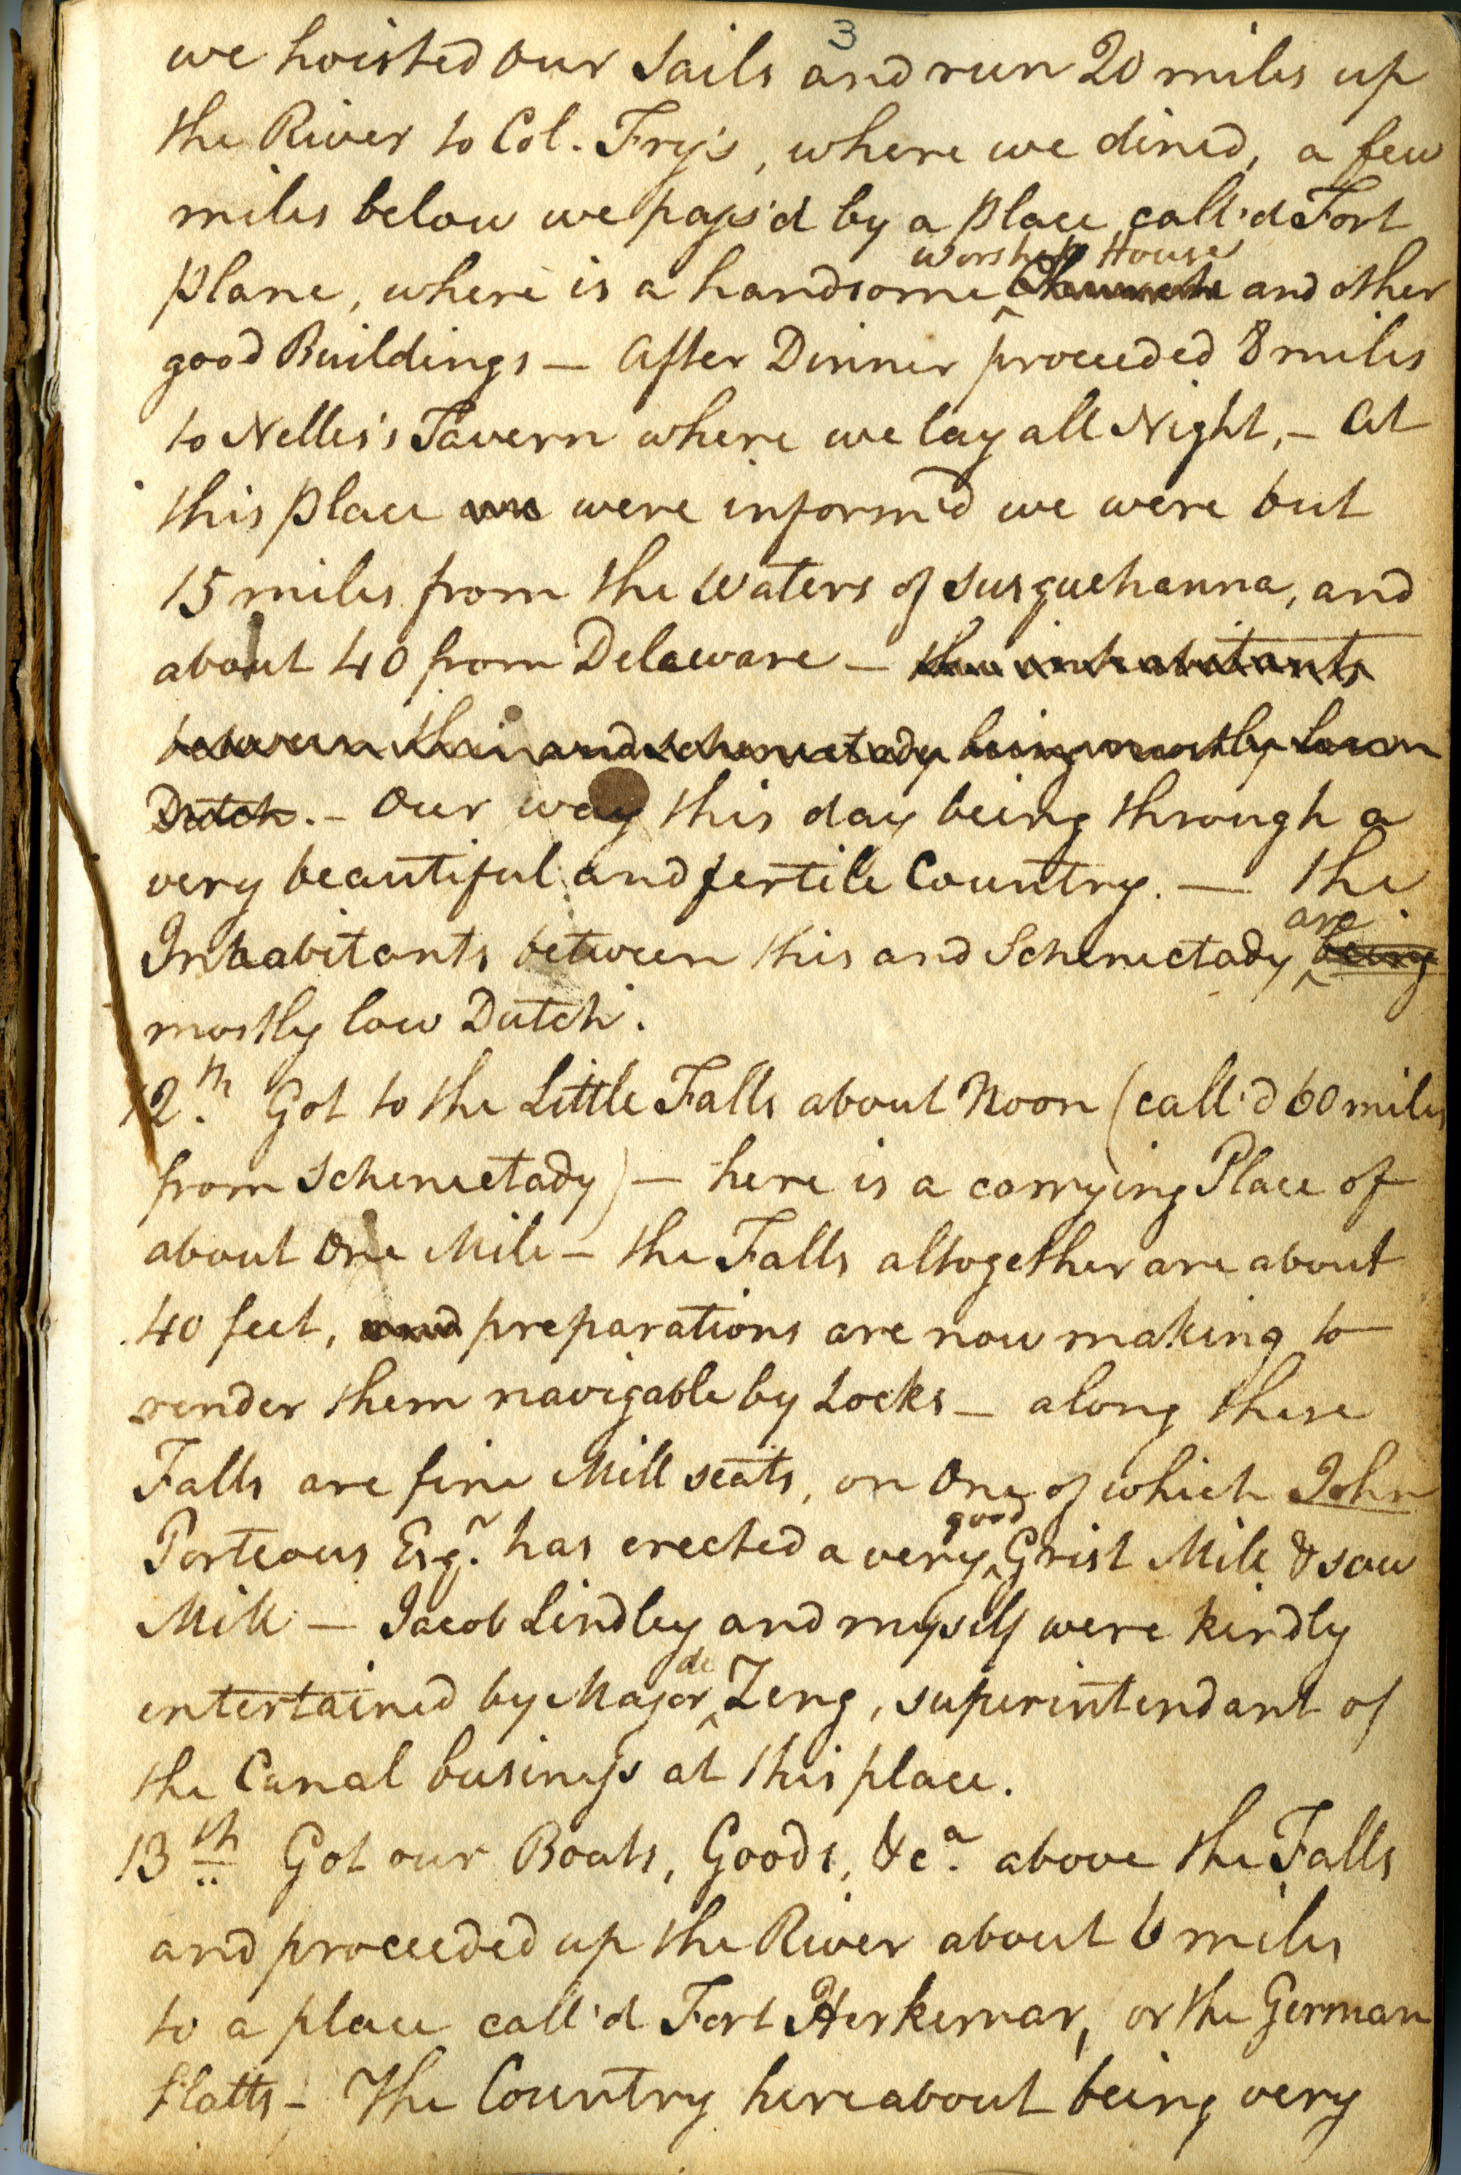 3
we hoisted our Sails and run 20 miles up
the River to Col. Fry's, where we dined, a few
miles below we pass'd by a place call'd Fort
worship House
Plane, where is a handsome ^ Church and other
good Buildings — After Dinner proceeded 8 miles
to Nellis's Tavern where we lay all Night, — At
this place we were inform'd we were but
15 miles from the Waters of Susquehanna, and
about 40 from Delaware — the inhabitants
between this and Schenectady being mostly low
Dutch. — Our way this day being through a
very beautiful and fertile Country. — The
are
Inhabitants between this and Schenectady ^ being
mostly low Dutch.
12th. Got to the Little Falls about Noon (call'd 60 miles
from Schenectady) — here is a carrying Place of
about One Mile — the Falls altogether are about
40 feet, and preparations are now making to
render them navigable by Locks — along these
Falls are fine Mill seats, on One of which John
good
Porteous Esqr. has erected a very ^ Grist Mill & saw
Mill — Jacob Lindley and myself were kindly
de
entertained by Major ^ Zeng, superintendant of
the Canal business at this place.
13th Got our Boats, Goods, &ca. above the Falls
and proceeded up the River about 6 miles
to a place call'd Fort Herkemar, or the German
flatts — The Country hereabout being very